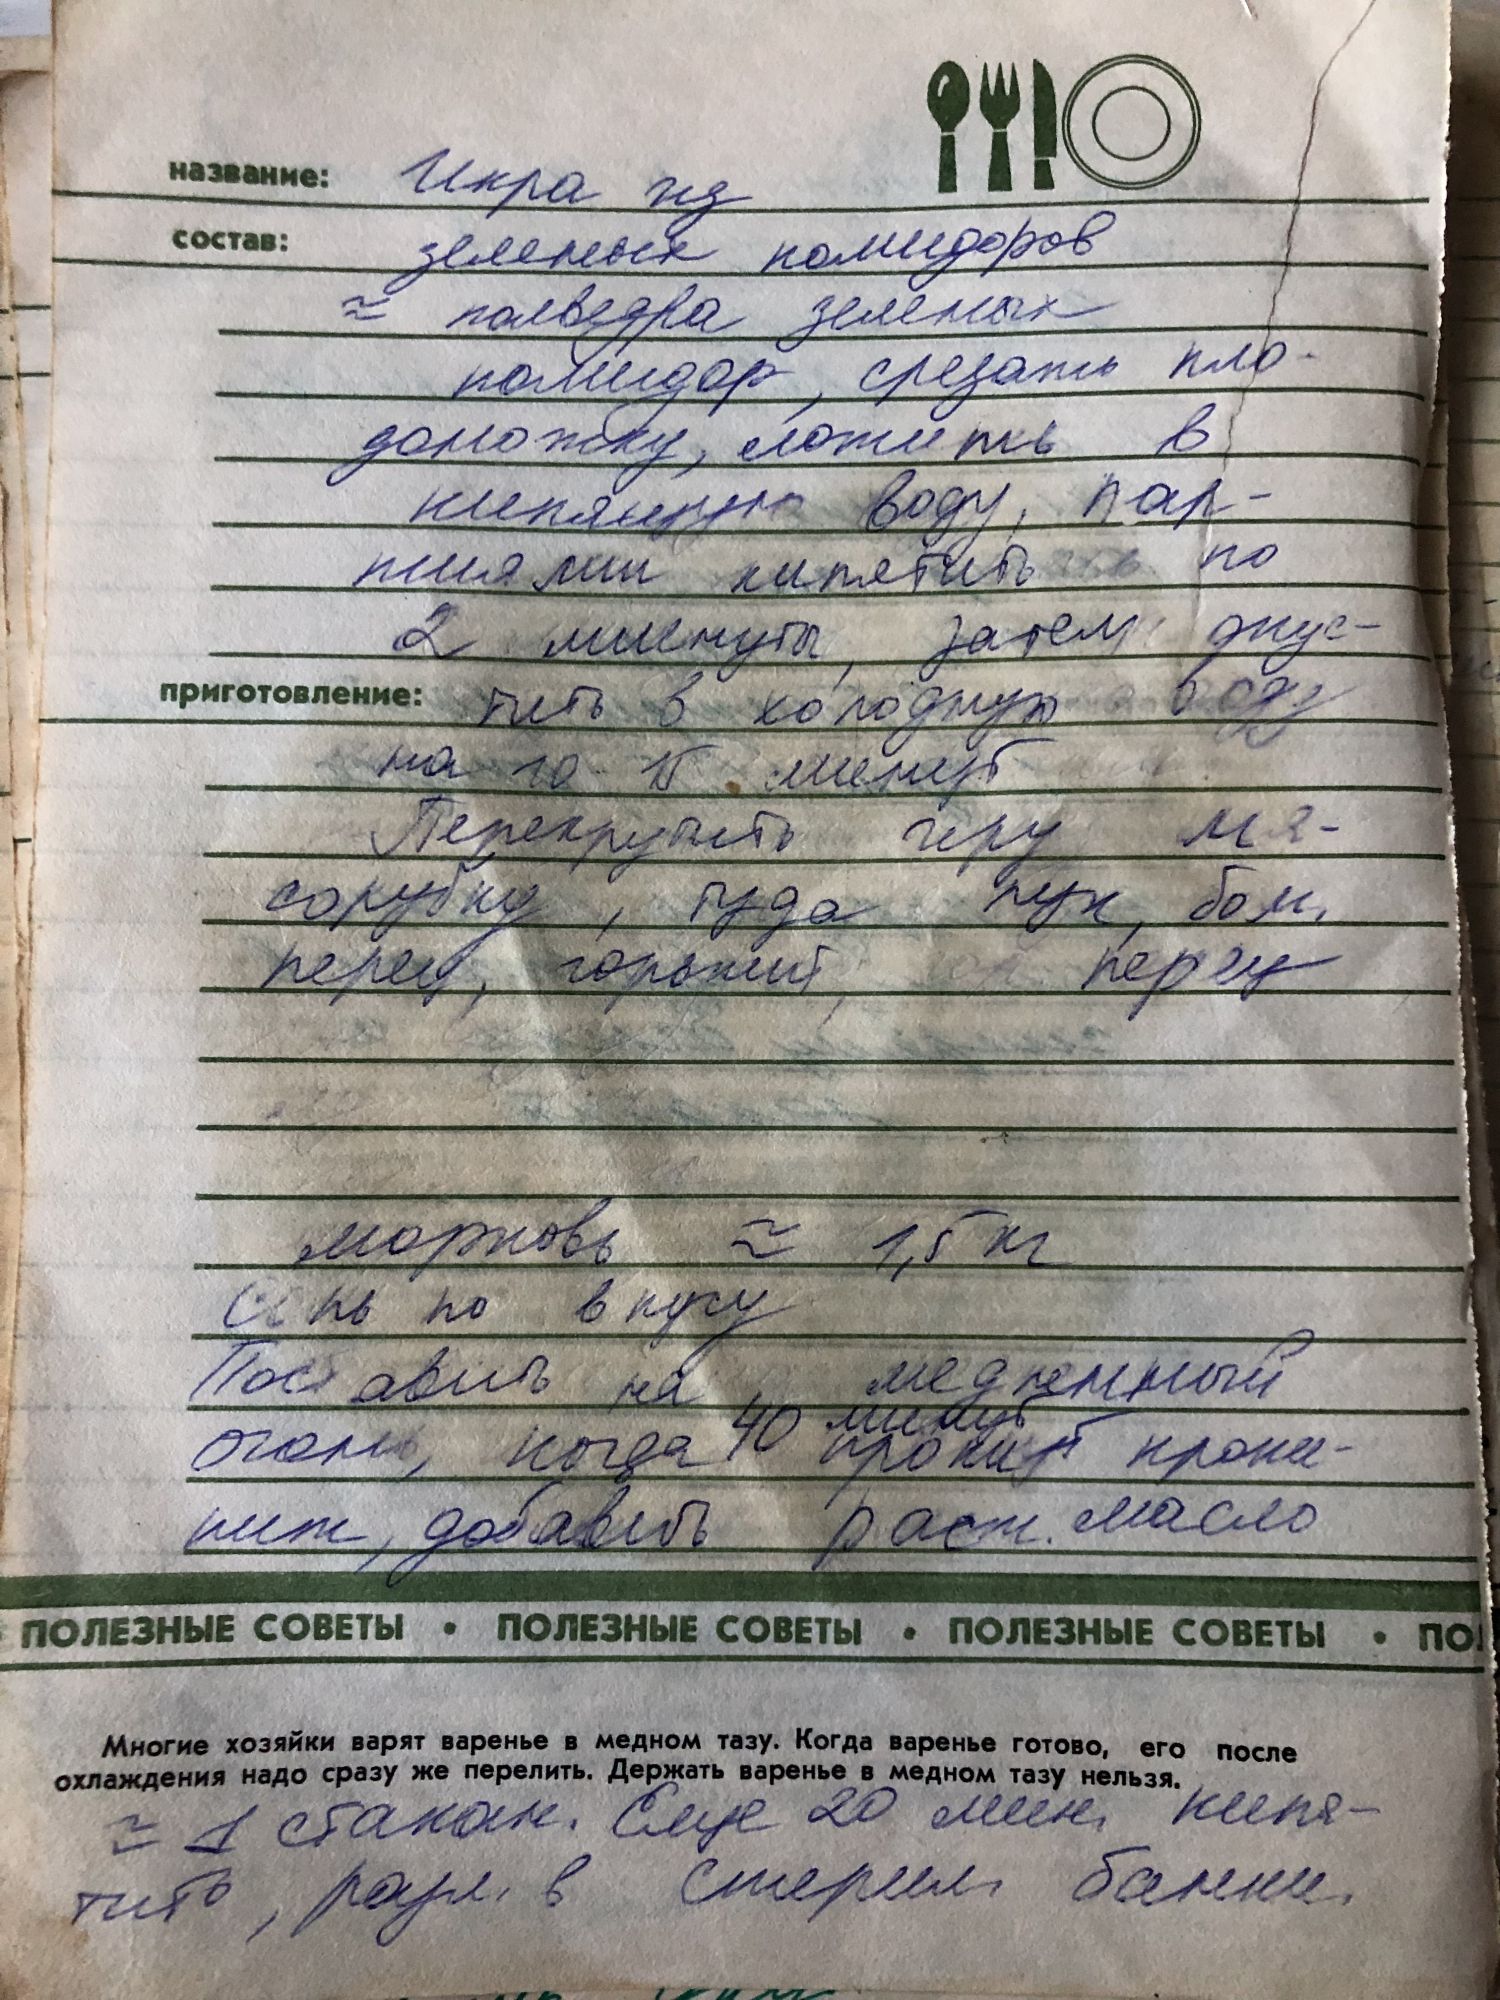 название: Икра из
состав: зеленых помидоров
≈ полведра зеленых
помидор, срезать пло-
доножку, ложить в
кипящую воду, пар-
тиями кипятить по
2 минуты, затем опус-
приготовление: тить в холодную воду
на 10-15 минут
Перекрутить чер мя-
сорубку, туда лук, бол.
перец, горький, перец
морковь ≈ 1,5 кг
Соль по вкусу
Поставить на медленный
огонь, когда 40 минут
прокипит, добавить раст. масло
ПОЛЕЗНЫЕ СОВЕТЫ • ПОЛЕЗНЫЕ СОВЕТЫ • ПОЛЕЗНЫЕ СОВЕТЫ • ПО
Многие хозяйки варят варенье в медном тазу. Когда варенье готово, его после
охлаждения надо сразу же перелить. Держать варенье в медном тазу нельзя.
≈ 1 стакан. Еще 20 мин. кипя-
тить, разл. в стерил. банки.